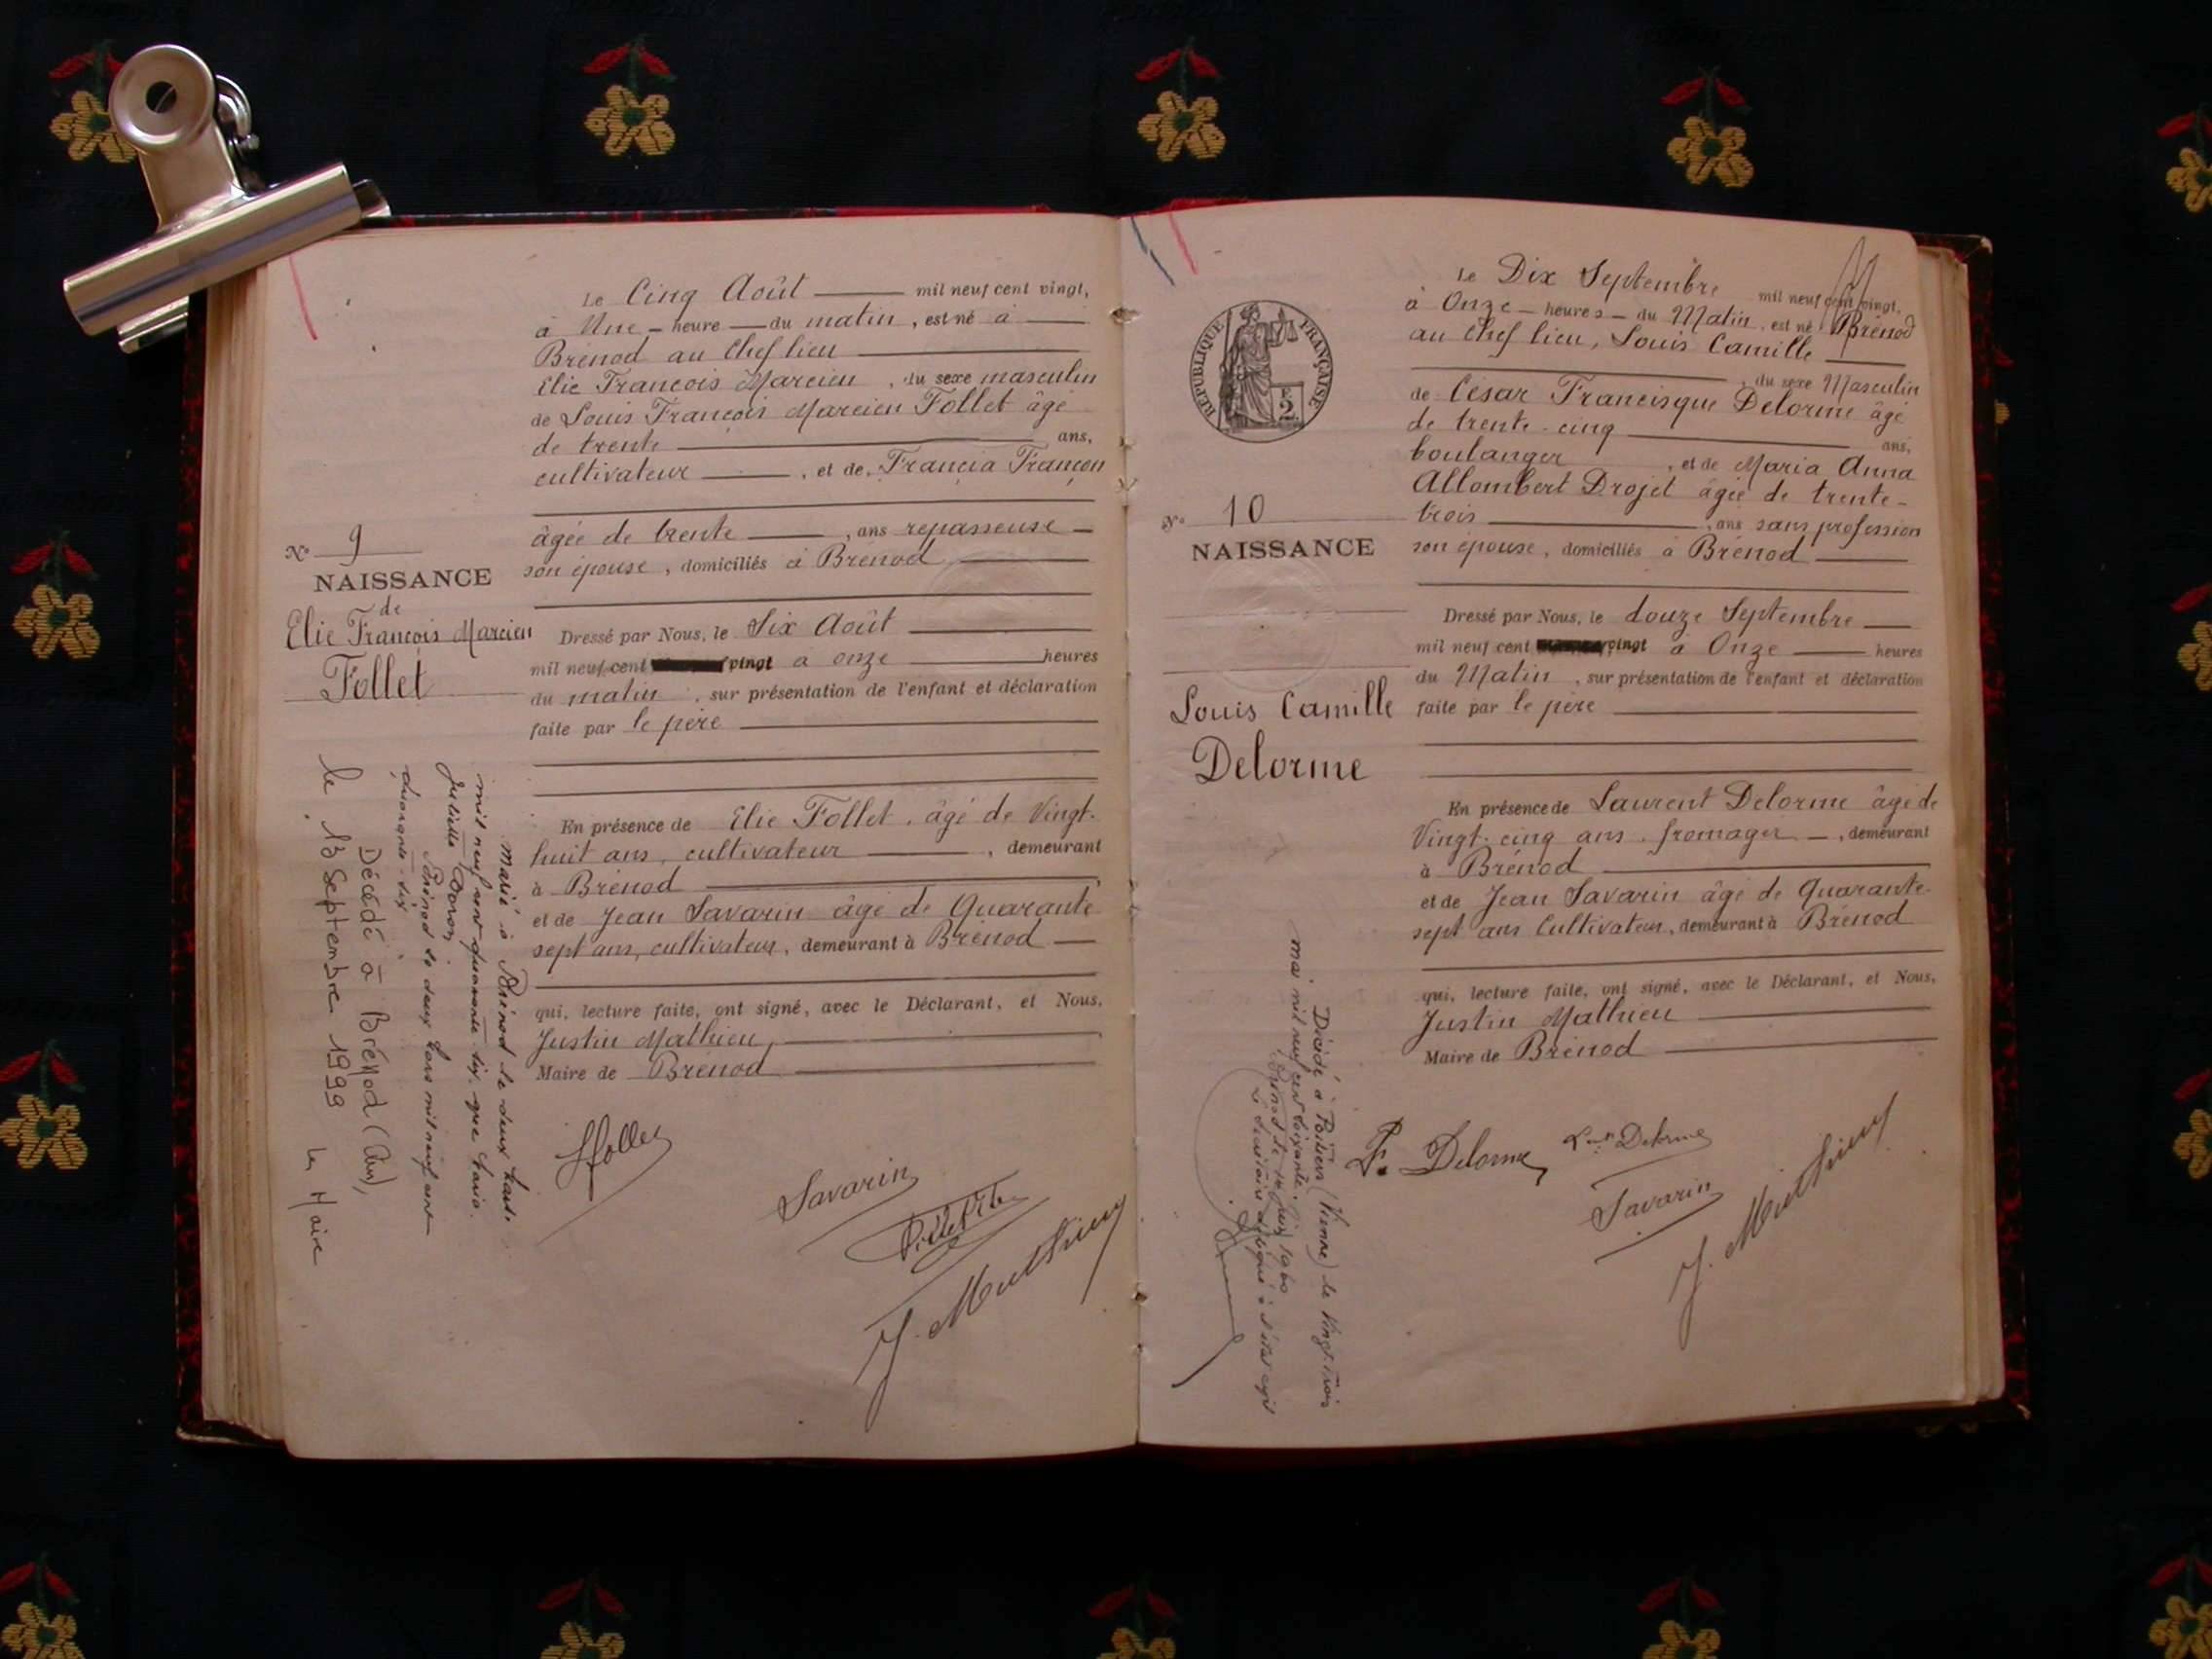 Le Cinq Août mil neuf cent vingt,
à Une heure du matin, est né à
Brénod au Chef lieu
Elie François Marcien, du sexe masculin
de Louis François Marcien Follet âgé
de trente ans,
cultivateur, et de Francia Françon
âgée de trente, ans repasseuse
son épouse, domiciliés à Brénod
N° 9
NAISSANCE
de
Elie François Marcien
Follet
Dressé par Nous, le Six Août
mil neuf cent vingt à onze heures
du matin, sur présentation de l'enfant et déclaration
faite par le père
En présence de Elie Follet, âgé de Vingt-
huit ans, cultivateur, demeurant
à Brénod
et de Jean Savarin âgé de Quarante
sept ans, cultivateur, demeurant à Brénod
qui, lecture faite, ont signé, avec le Déclarant, et Nous,
Justin Mathieu
Maire de Brénod
Marié à Brénod le deux
mil neuf cent quarante six
Juliette
Brénod le deux mil neuf cent
quarante-six
Décédé à Brénod (Ain),
le 13 Septembre 1999 Le Maire
Savarin
J. Mathieu
RÉPUBLIQUE FRANÇAISE
2
Le Dix Septembre mil neuf cent vingt,
à Onze heures du Matin, est né à Brénod
au Chef lieu, Louis Camille
, du sexe Masculin
de César Francisque Delorme âgé
de trente-cinq ans,
boulanger, et de Maria Anna
Allombert Drojet âgée de trente-
trois, ans sans profession
son épouse, domiciliés à Brénod
N° 10
NAISSANCE
Louis Camille
Delorme
Dressé par Nous, le douze Septembre
mil neuf cent vingt à Onze heures
du Matin, sur présentation de l'enfant et déclaration
faite par le père
En présence de Laurent Delorme âgé de
Vingt-cinq ans, fromager, demeurant
à Brénod
et de Jean Savarin âgé de Quarante-
sept ans Cultivateur, demeurant à Brénod
qui, lecture faite, ont signé, avec le Déclarant, et Nous,
Justin Mathieu
Maire de Brénod
Décédé à Poitiers (Vienne) le Vingt-trois
mai mil neuf cent soixante.
Brénod le juin 1960
délégué à l'état civil
Delorme
Delorme
Savarin
J. Mathieu